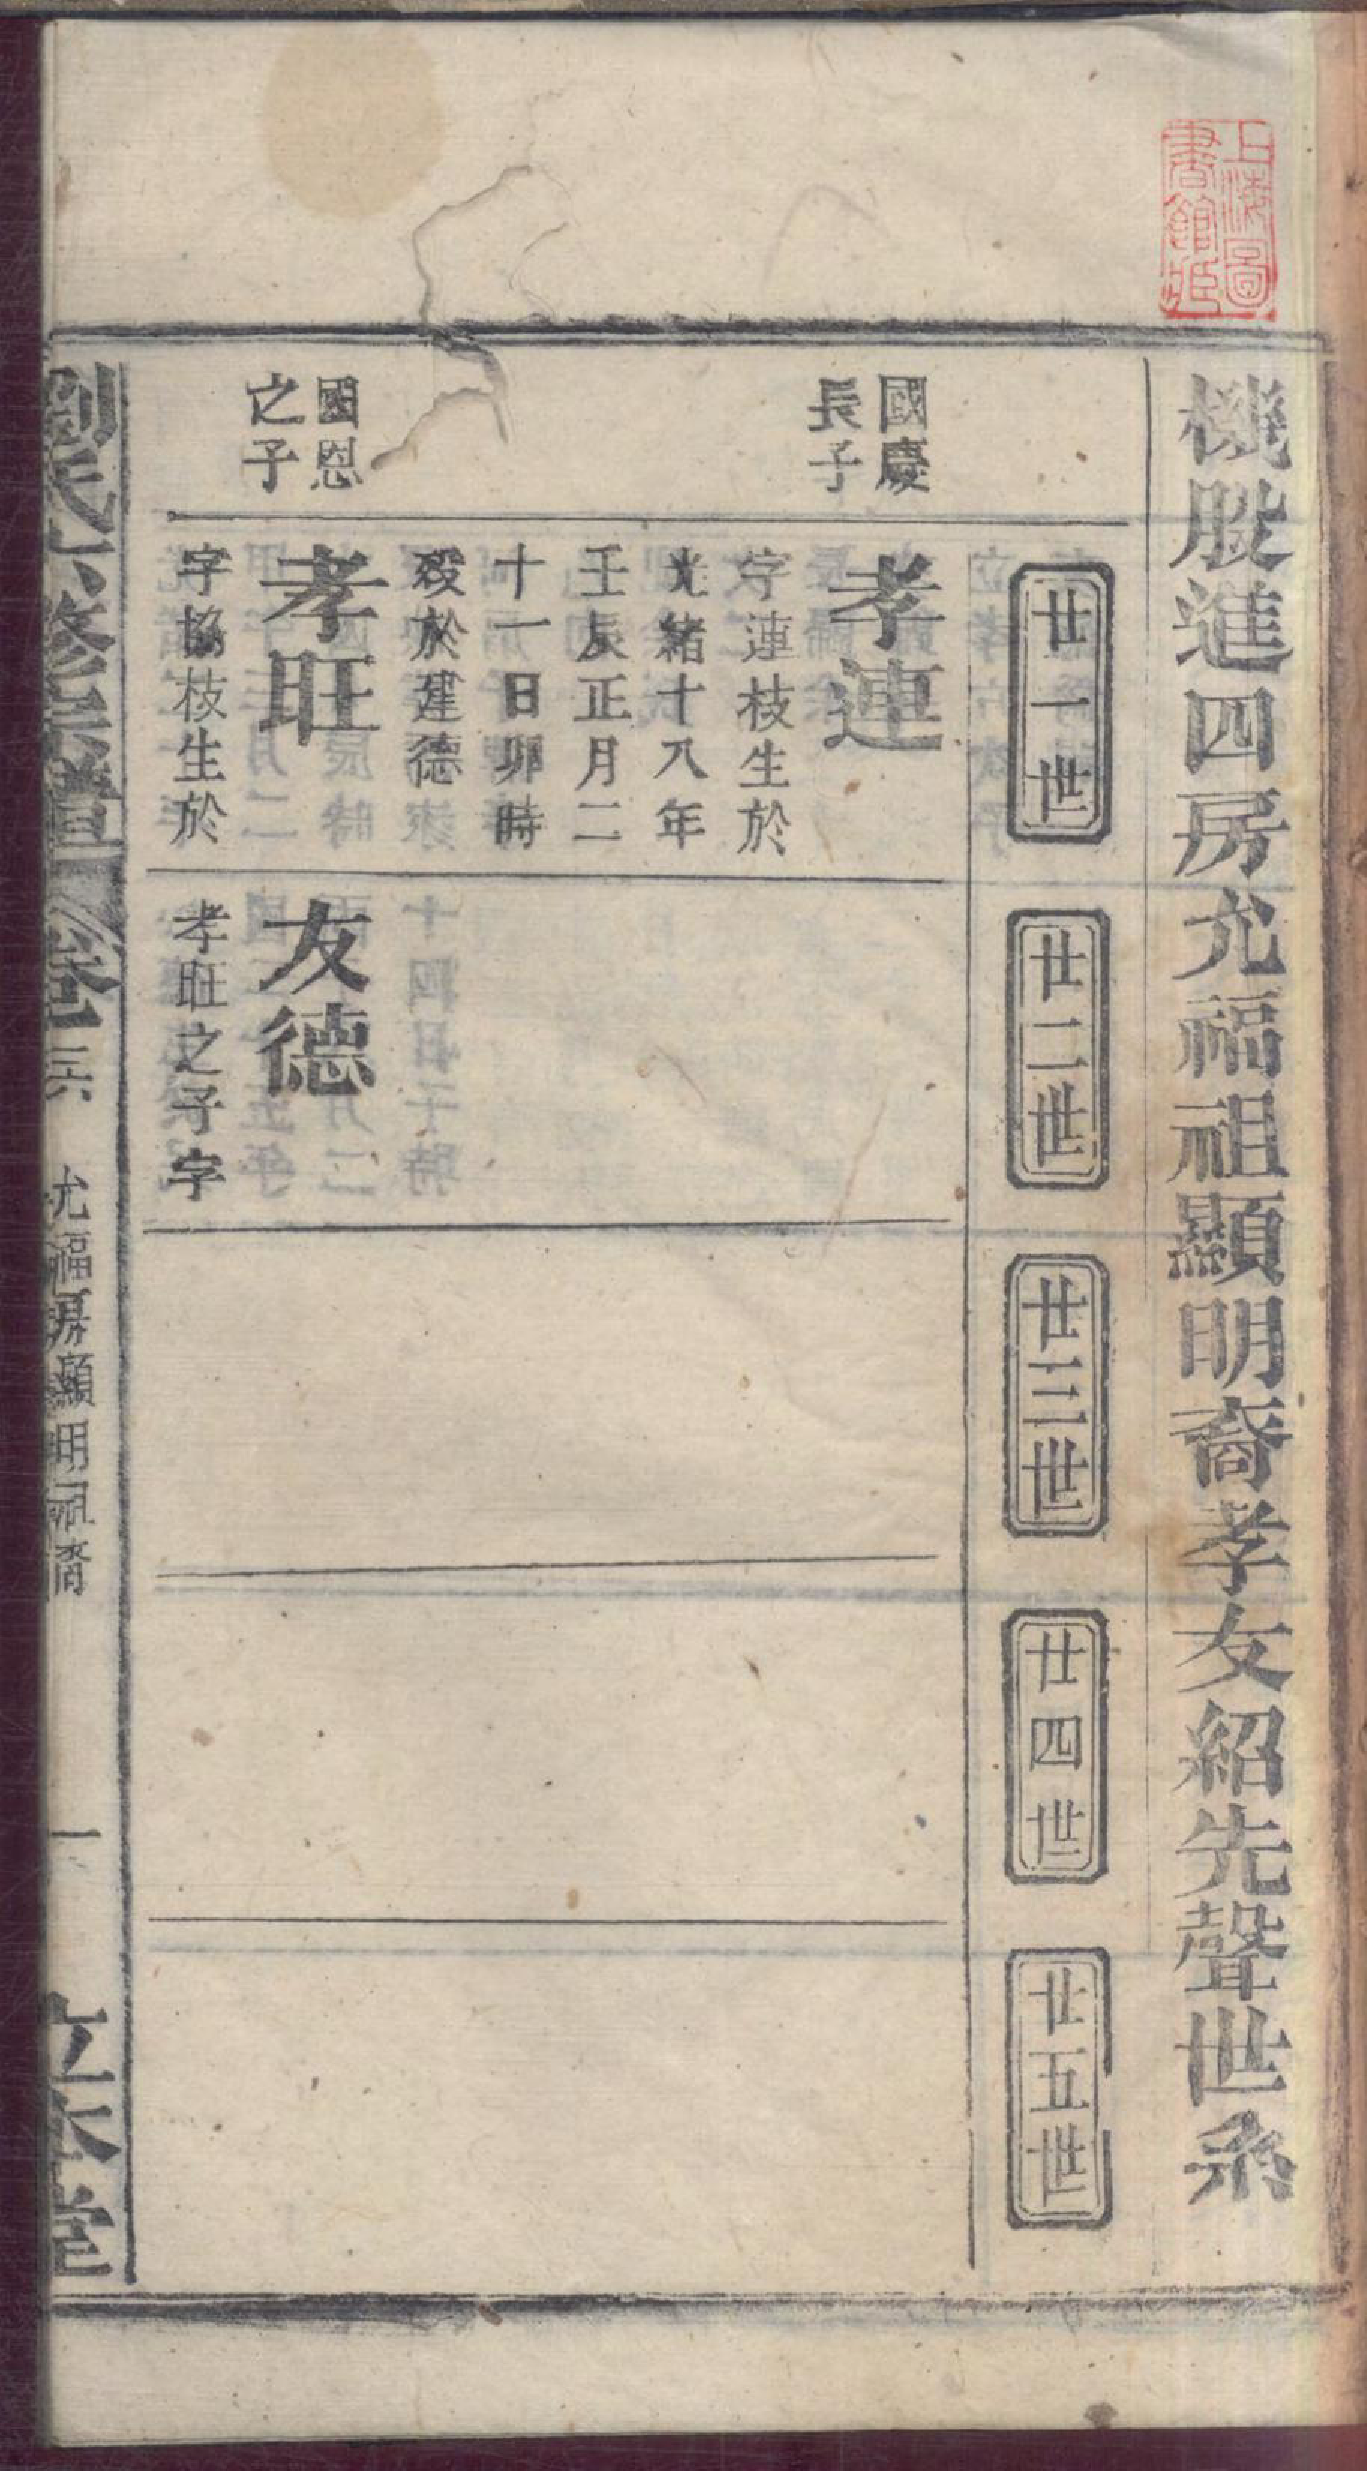 上海圖
書館藏
機股進四房尤福祖顯明裔孝友紹先聲世系
廿一世
廿二世
廿三世
廿四世
廿五世
國慶
長子
孝連
字連枝生於
光緒十八年
壬辰正月二
十一日卯時
殁於建德
國恩
之子
孝旺
字協枝生於
友德
孝旺之子字
劉氏六修宗譜
卷三六
尤福房顯明祖裔
一
立本堂